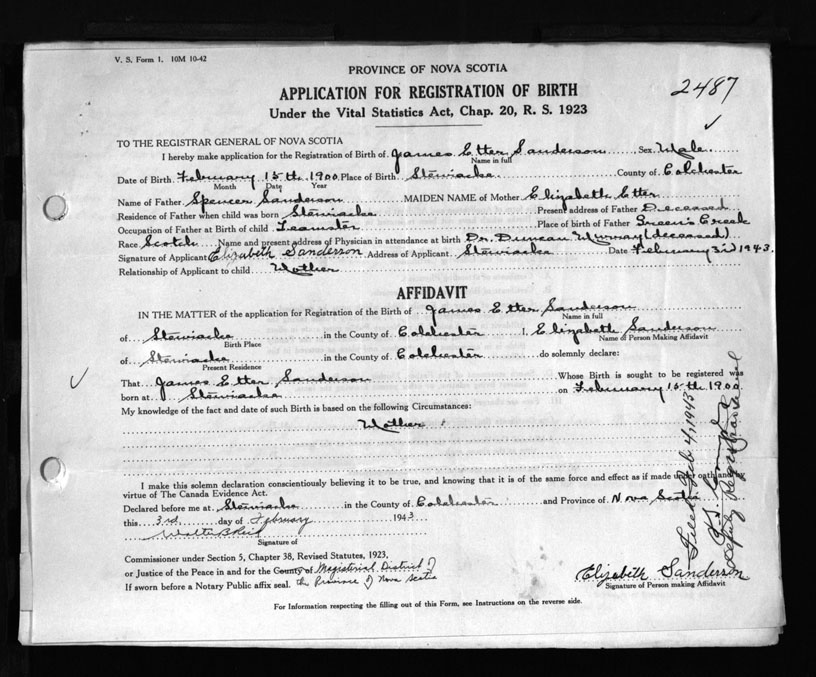 V. S. Form 1. 10M 10-42
PROVINCE OF NOVA SCOTIA
APPLICATION FOR REGISTRATION OF BIRTH
2487
Under the Vital Statistics Act, Chap. 20, R. S. 1923
TO THE REGISTRAR GENERAL OF NOVA SCOTIA
I hereby make application for the Registration of Birth of James Etter Sanderson Sex Male
Name in full
Date of Birth February 15th 1900 Place of Birth Stewiacke County of Colchester
Month Date Year
Name of Father Spencer Sanderson MAIDEN NAME of Mother Elizabeth Etter
Residence of Father when child was born Stewiacke Present address of Father Deceased
Occupation of Father at Birth of child Teamster Place of birth of Father Green's Creek
Race Scotch Name and present address of Physician in attendance at birth Dr. Duncan Murray (deceased)
Signature of Applicant Elizabeth Sanderson Address of Applicant Stewiacke Date February 3rd 1943.
Relationship of Applicant to child Mother
AFFIDAVIT
IN THE MATTER of the application for Registration of the Birth of James Etter Sanderson
Name in full
of Stewiacke in the County of Colchester I, Elizabeth Sanderson
Birth Place Name of Person Making Affidavit
of Stewiacke in the County of Colchester do solemnly declare:
Present Residence
That James Etter Sanderson Whose Birth is sought to be registered was
born at Stewiacke on February 15th 1900
My knowledge of the fact and date of such Birth is based on the following Circumstances:
Mother
I make this solemn declaration conscientiously believing it to be true, and knowing that it is of the same force and effect as if made under oath and by
virtue of The Canada Evidence Act.
Declared before me at Stewiacke in the County of Colchester and Province of Nova Scotia
this 3rd day of February 1943
Signature of
Commissioner under Section 5, Chapter 38, Revised Statutes, 1923,
or Justice of the Peace in and for the County of Magisterial District of
If sworn before a Notary Public affix seal. the Province of Nova Scotia
Elizabeth Sanderson
Signature of Person making Affidavit
For Information respecting the filling out of this Form, see Instructions on the reverse side.
Filed Feb 4, 1943
Deputy Registrar